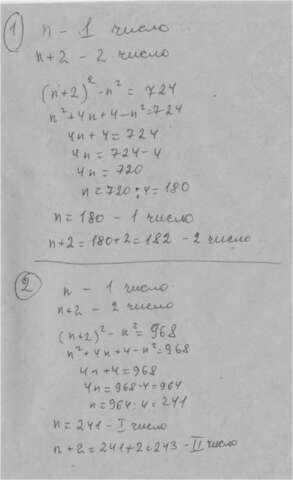 1) n - 1 число
n+2 - 2 число
(n+2)² - n² = 724
n²+4n+4-n²=724
4n+4=724
4n=724-4
4n=720
n=720:4=180
n=180 - 1 число
n+2=180+2=182 - 2 число
2) n - 1 число
n+2 - 2 число
(n+2)² - n² = 968
n²+4n+4-n²=968
4n+4=968
4n=968-4=964
n=964:4=241
n=241 - I число
n+2=241+2=243 - II число